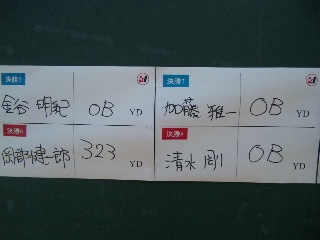 決勝5
金谷 明紀 OB YD
決勝6
岡部 健一郎 323 YD
決勝7
加藤 雅一 OB YD
決勝8
清水 剛 OB YD